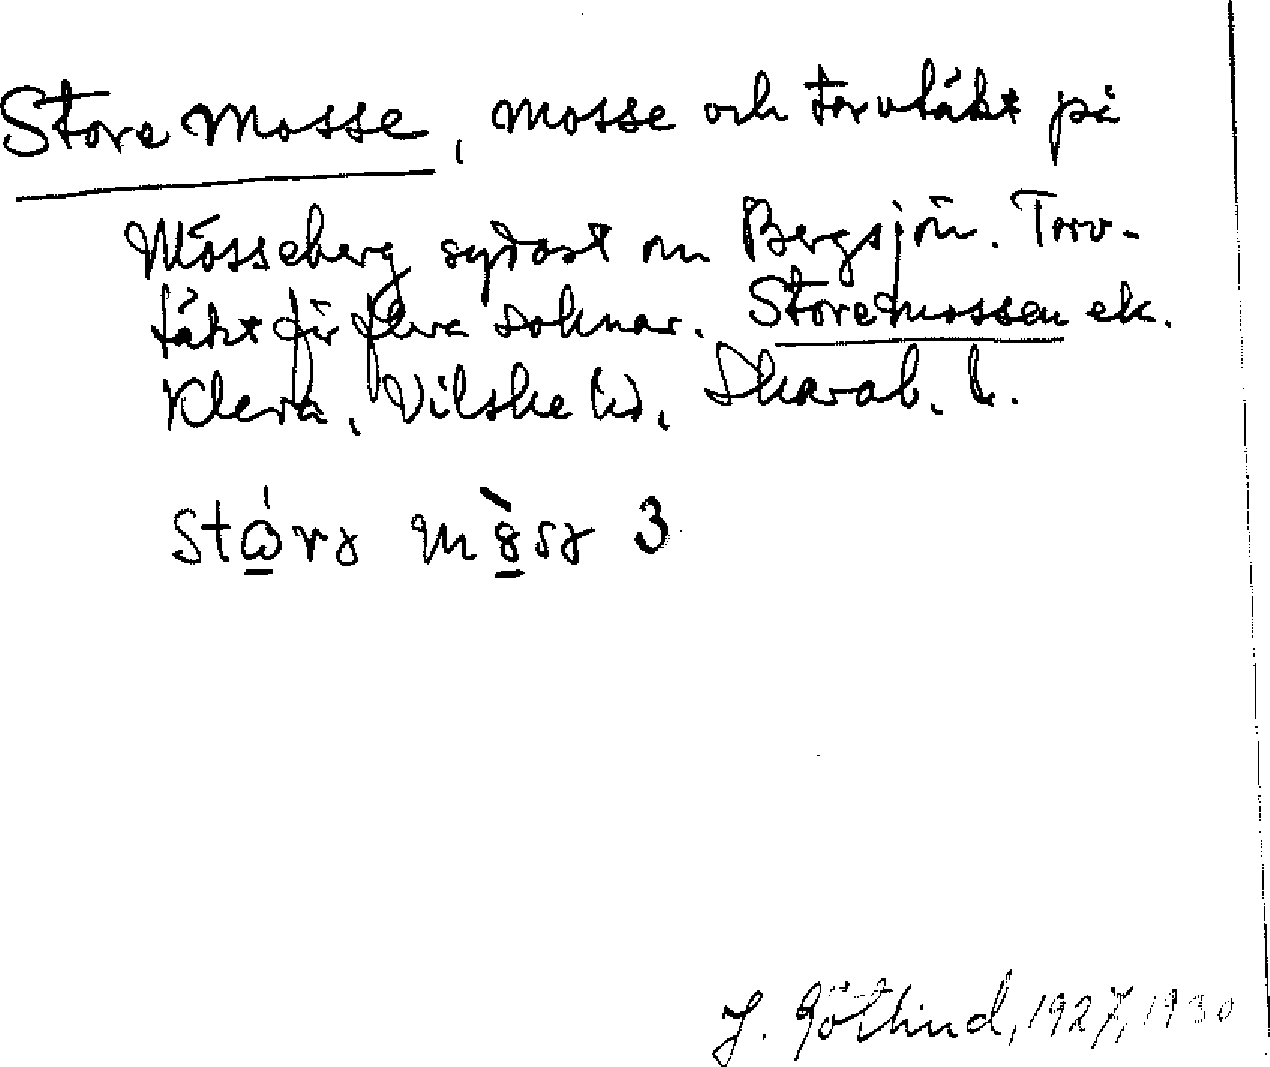 Store Mosse, mosse och torvtäkt på
Mösseberg sydost om Bergsjön. Torv-
täkt för flera socknar. Storemossen ek.
Kleva, Vilske hd, Skarab. l.
3
J. Götlind, 1927, 1930